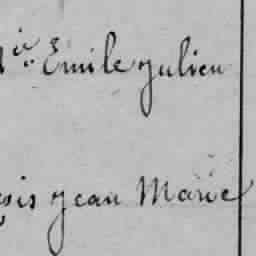 Emile Julien
Jean Marie